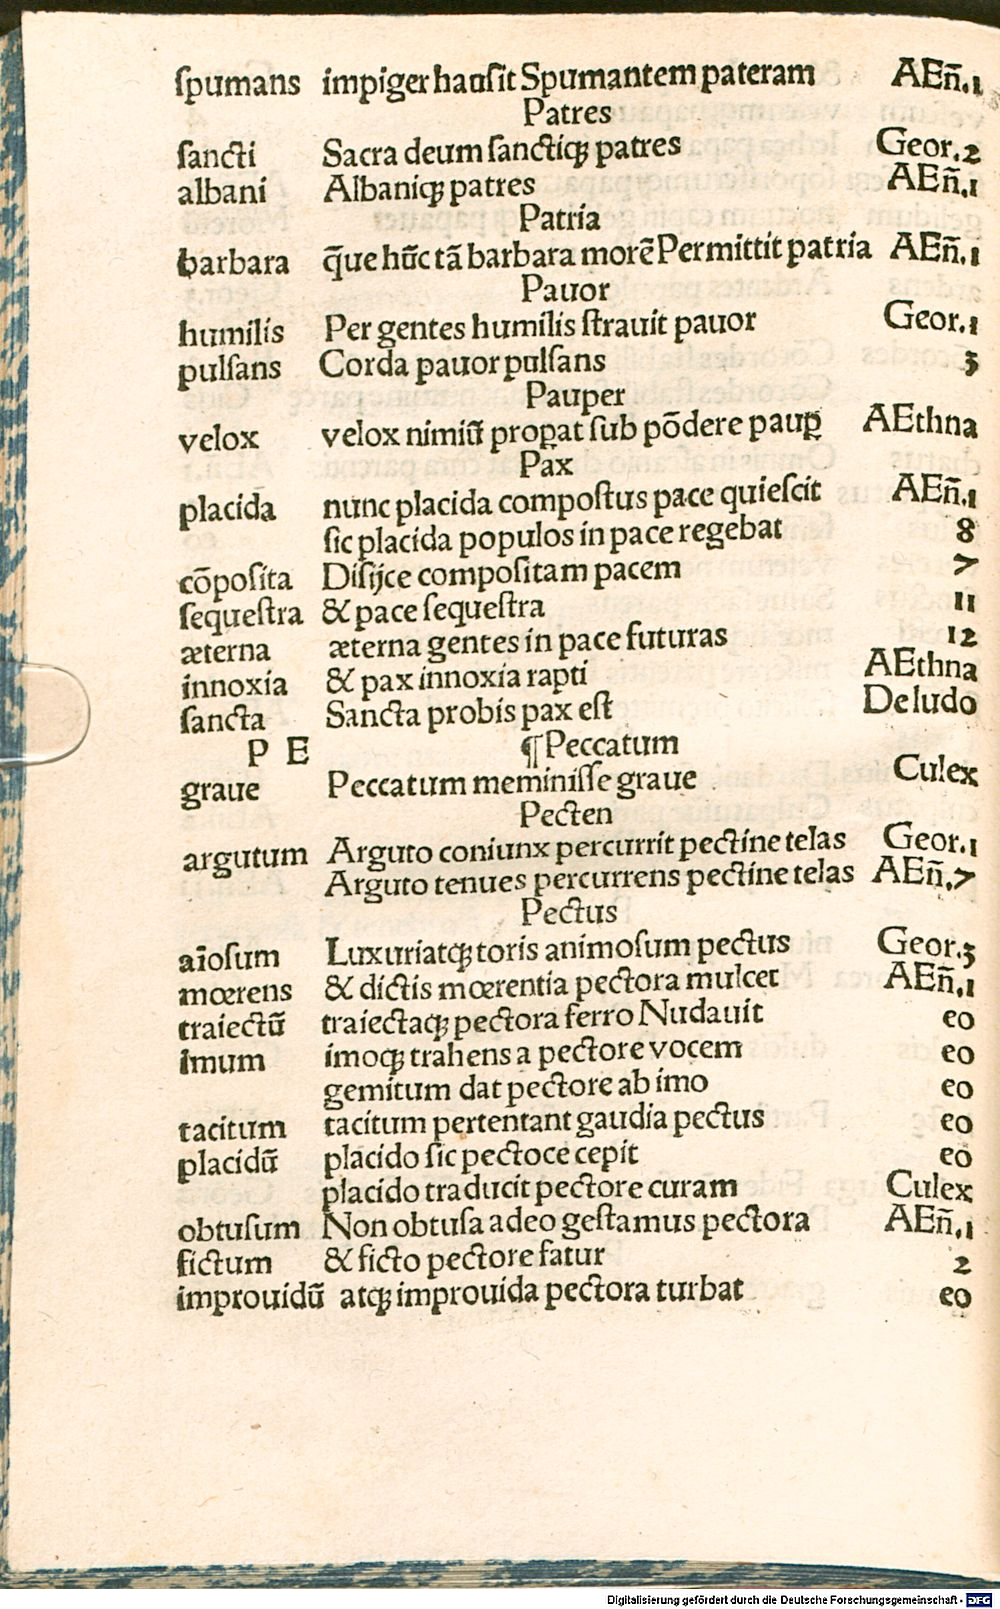 spumans impiger hausit Spumantem pateram AEñ.1
Patres
ſancti Sacra deum ſanctiqꝫ patres Geor.2
albani Albaniqꝫ patres AEñ.1
Patria
barbara q̃ue hũc tã barbara morẽ Permittit patria AEñ.1
Pauor
humilis Per gentes humilis ſtrauit pauor Geor.1
pulſans Corda pauor pulſans 3
Pauper
velox velox nimiũ prop̱at ſub põdere paup̱ AEthna
Pax
placida nunc placida compoſtus pace quieſcit AEñ.1
ſic placida populos in pace regebat 8
cõpoſita Diſijce compoſitam pacem 7
ſequeſtra & pace ſequeſtra 11
æterna æterna gentes in pace futuras 12
innoxia & pax innoxia rapti AEthna
ſancta Sancta probis pax eſt De ludo
P E ¶ Peccatum
graue Peccatum meminiſſe graue Culex
Pecten
argutum Arguto coniunx percurrit pectine telas Geor.1
Arguto tenues percurrens pectine telas AEñ.7
Pectus
aĩoſum Luxuriatqꝫ toris animoſum pectus Geor.3
mœrens & dictis mœrentia pectora mulcet AEñ.1
traiectũ traiectaqꝫ pectora ferro Nudauit eo
imum imoqꝫ trahens a pectore vocem eo
gemitum dat pectore ab imo eo
tacitum tacitum pertentant gaudia pectus eo
placidũ placido ſic pectoce cepit eo
placido traducit pectore curam Culex
obtuſum Non obtuſa adeo geſtamus pectora AEñ.1
fictum & ficto pectore fatur 2
improuidũ atqꝫ improuida pectora turbat eo
Digitalisierung gefördert durch die Deutsche Forschungsgemeinschaft - DFG